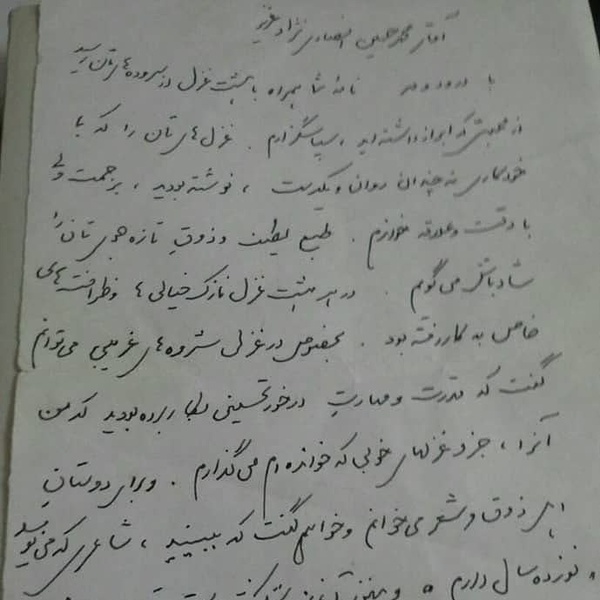 آقای محمدحسین انصاری نژاد عزیز
با درود و مهر نامهٔ شما همراه با هشت غزل از سروده‌های‌تان رسید
از محبتی که ابراز داشته‌اید، سپاسگزارم. غزل‌های‌تان را که با
خودکاری نه چندان روان و یکدست، نوشته بودید، به زحمت ولی
با دقت و علاقه خواندم. طبع لطیف و ذوق تازه‌جوی‌تان را
شادباش می‌گویم. در هر هشت غزل نازک خیالی‌ها و ظرافت‌های
خاصی به کار رفته بود. بخصوص در غزل شروه‌های غریبی می‌توانم
گفت که قدرت و مهارتِ درخور تحسینی بکار برده بودید که من
آنرا، جزو غزلهای خوبی که خوانده‌ام می‌گذارم. و برای دوستانِ
اهل ذوق و شعر می‌خوانم و خواهم گفت که ببینید، شاعری که می‌نویسد
«نوزده سال دارم»